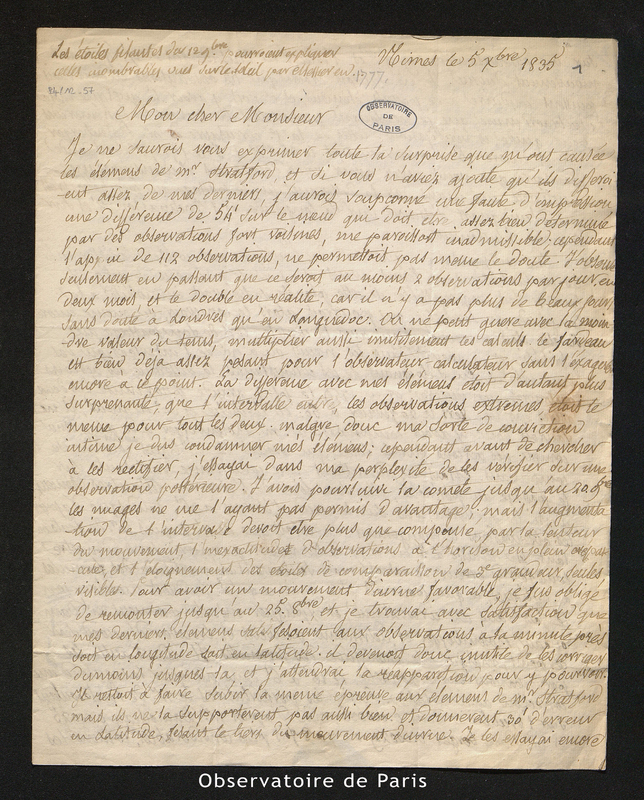 Les étoiles filantes du 12 9bre pourroient expliquer
celles inombrables vues sur le soleil par Messier en 1777.
Nimes le 5 Xbre 1835
1
Mon cher Monsieur
OBSERVATOIRE
DE
PARIS
Je ne saurois vous exprimer toute la surprise que m'ont causée
les élémens de mr Stratford, et si vous n'aviez ajouté qu'ils différoi
ent assez de mes derniers, j'aurois soupconné une faute d'impression
une différence de 54' sur le nœud qui doit etre assez bien déterminé
par des observations fort voisines, me paroissoit inadmissible; cependant
l'appui de 112 observations, ne permettoit pas meme le doute. J'observe
seulement en passant que ce seroit au moins 2 observations par jour, en
deux mois, et le double en réalité, car il n'y a pas plus de beaux jours
sans doute à Londres qu'en Languedoc. On ne peut guere avec la moin
dre valeur du tems, multiplier aussi inutilement les calculs. le fardeau
est bien déja assez pesant pour l'observateur calculateur sans l'exagerer
encore à ce point. La différence avec mes élémens étoit d'autant plus
surprenante, que l'intervalle entre les observations extremes étoit le
meme pour tout les deux. malgré donc ma sorte de conviction
intime je dus condamner mes élémens; cependant avant de chercher
à les rectifier, j'essayai dans ma perplexité de les vérifier sur une
observation postérieure. J'avois poursuivi la comete jusqu'au
les nuages ne me l'ayant pas permis d'avantage; mais l'augmenta
tion de l'intervale devoit etre plus que compensée, par la lenteur
du mouvement, l'inexactitude d'observations à l'horison en plein crépus
cule, et l'éloignement des étoiles de comparaison de 3e grandeur, seules
visibles. Pour avoir un mouvement diurne favorable, je fus obligé
de remonter jusqu'au 25 8bre, et je trouvai avec satisfaction que
mes derniers élémens satisfesoient aux observations à la minute près
soit en longitude soit en latitude. il devenoit donc inutile de les corriger
du moins jusques la, et j'attendrai la réapparition pour y pourvoir.
Il restoit à faire subir la meme épreuve aux élémens de mr Stratford
mais ils ne la supporterent pas aussi bien et donnerent 30' d'erreur
en latitude, fesant le tiers du mouvement diurne. Je les essayai encore
Observatoire de Paris